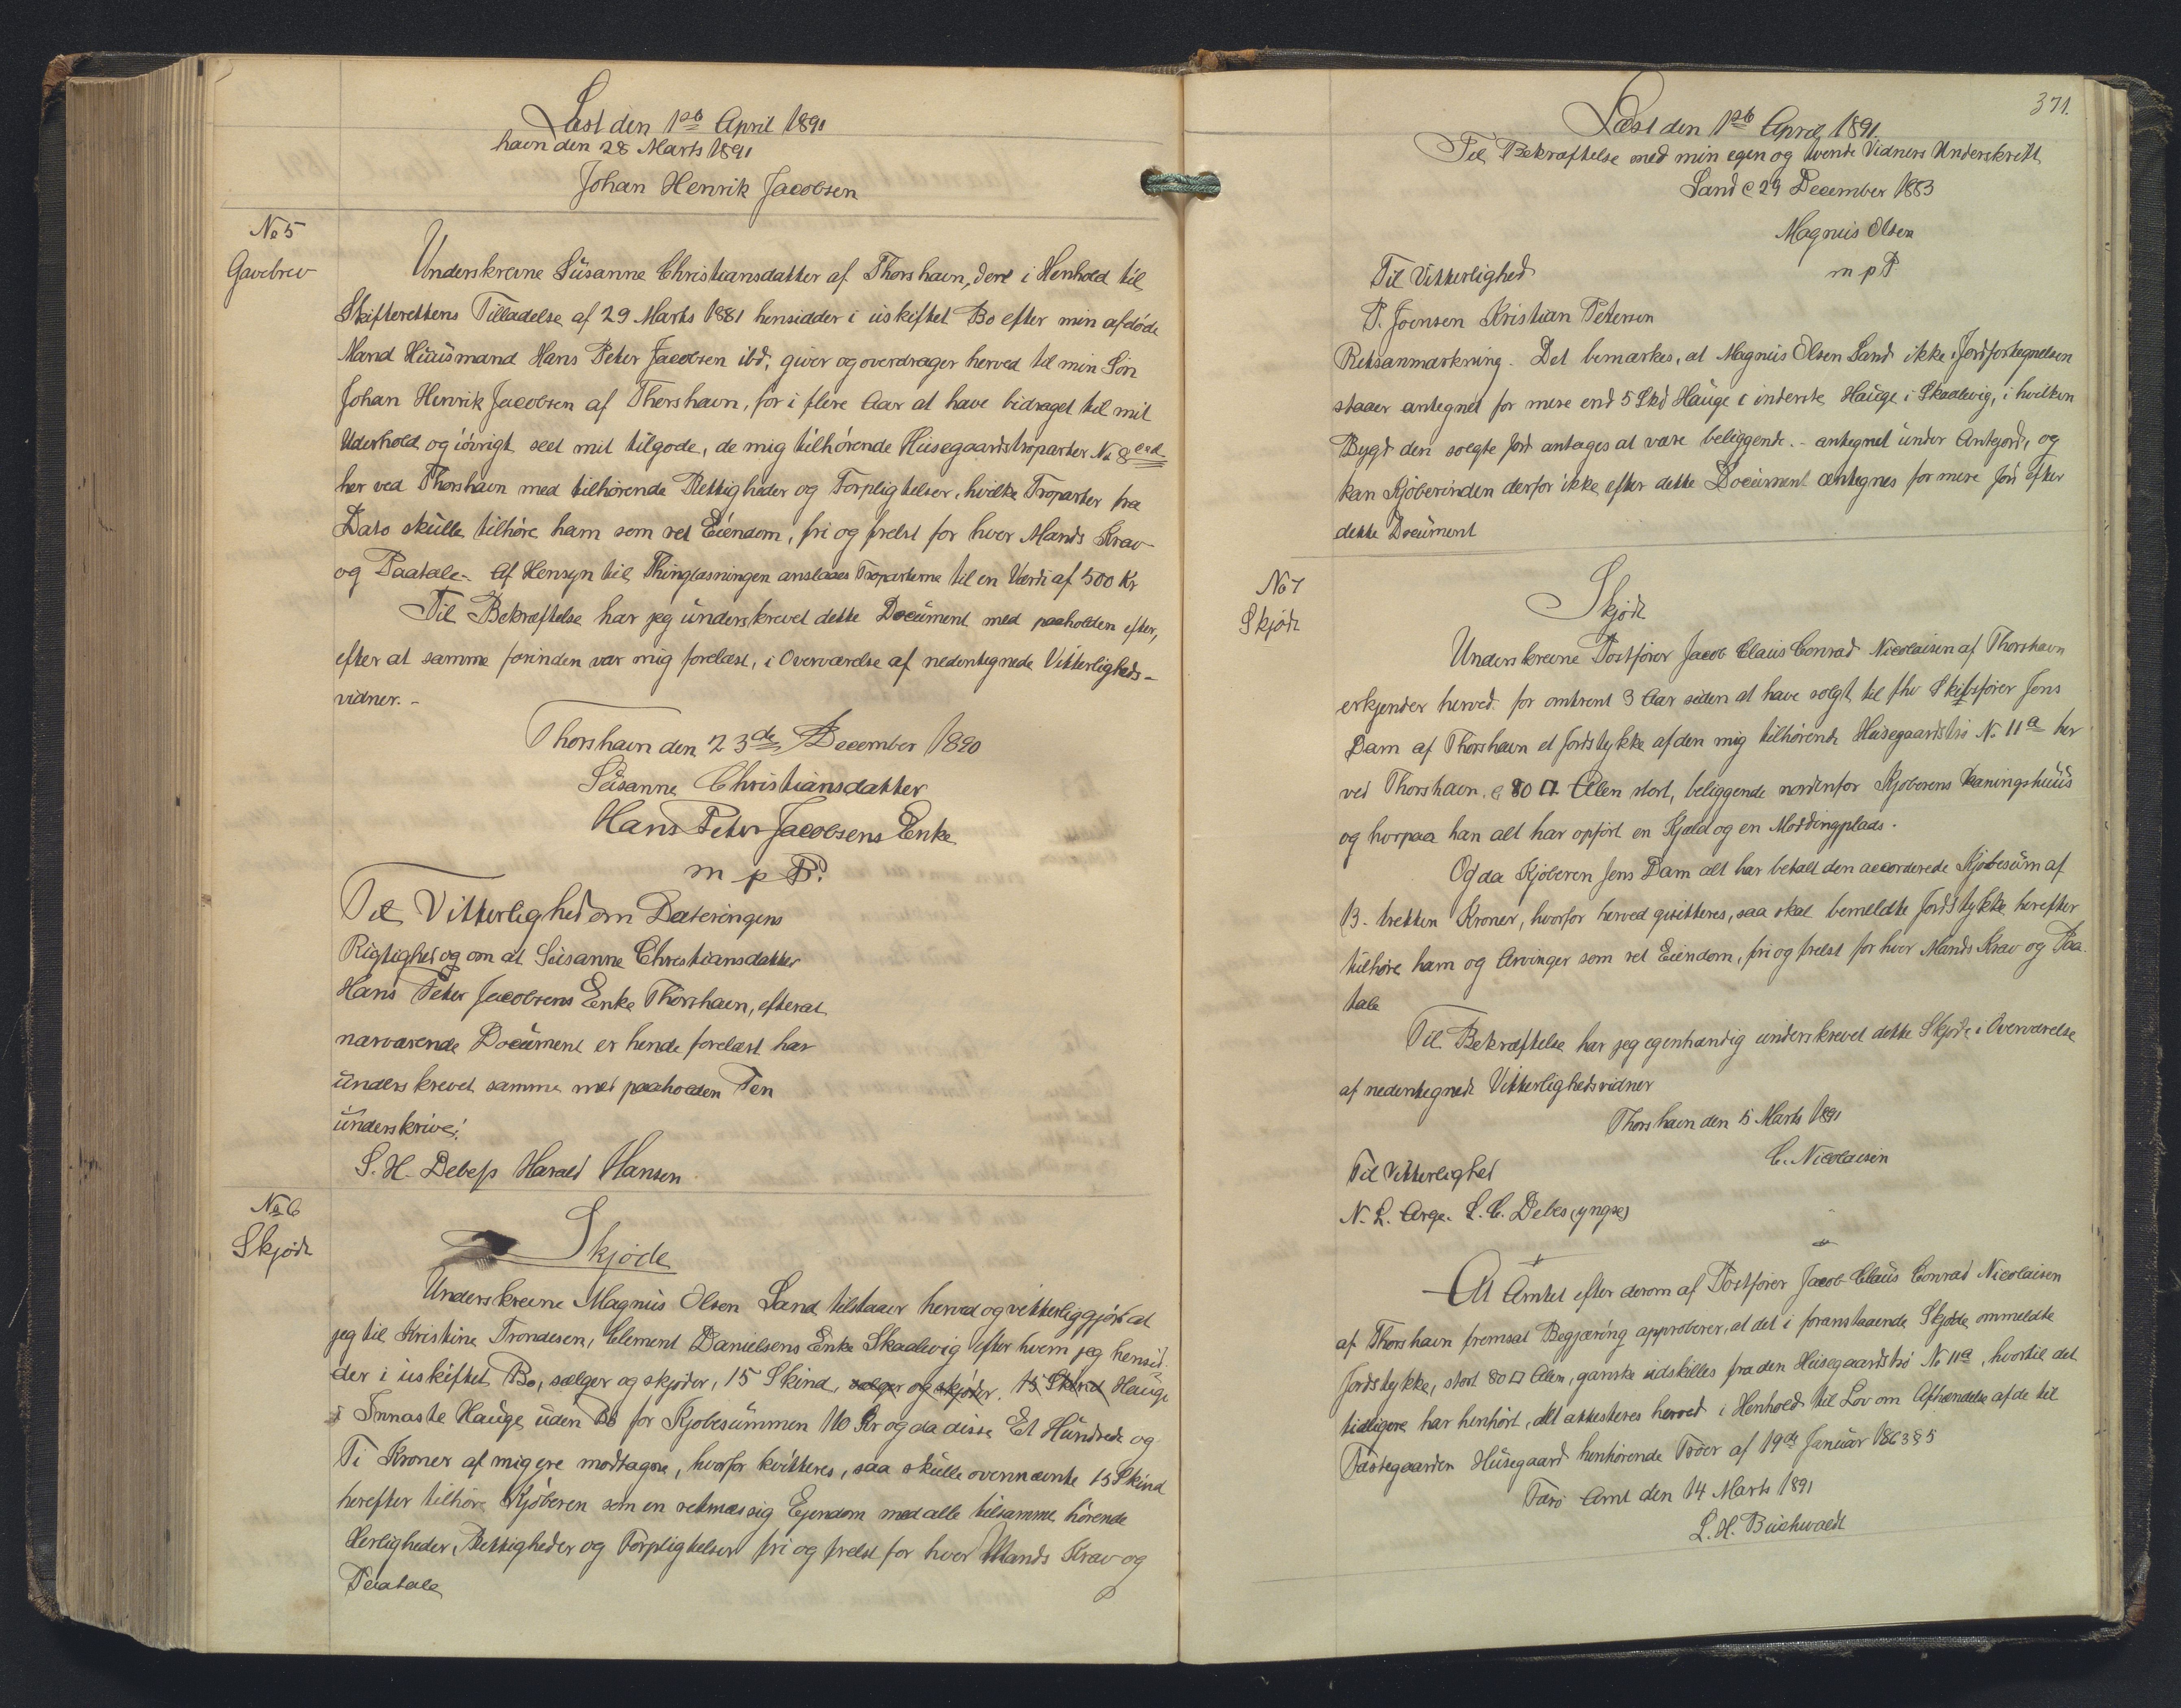 Læst den 1ste April 1891
havn den 28 Marts 1891
Johan Henrik Jacobsen
No 5
Gavebrev
Underskrevne Susanne Christiansdatter af Thorshavn, der i Henhold til
Skifterettens Tilladelse af 29 Marts 1881 hensidder i uskiftet Bo efter min afdøde
Mand Huusmand Hans Peter Jacobsen ibd, giver og overdrager herved til min Søn
Johan Henrik Jacobsen af Thorshavn, for i flere Aar at have bidraget til mit
Underhold og iøvrigt seet mit tilgode, de mig tilhørende Husegaardstrøparter No 8
her ved Thorshavn med tilhørende Rettigheder og Forpligtelser, hvilke Trøparter fra
Dato skulle tilhøre ham som ret Eiendom, fri og frelst for hver Mands Krav
og Paatale.- Af Hensyn til Thinglæsningen anslaaes Trøparterne til en Værdi af 500 Kr
Til Bekræftelse har jeg underskrevet dette Document med paaholden efter,
efter at samme forinden var mig forelæst, i Overværelse af nedentegnede Vitterligheds-
vidner.-
Thorshavn den 23de December 1890
Susanne Christiansdatter
Hans Peter Jacobsens Enke
m p P.
Til Vitterlighed om Dateringens
Rigtighed og om at Susanne Christiansdatter
Hans Peter Jacobsens Enke Thorshavn, efterat
nærværende Document er hende forelæst har
underskrevet samme med paaholden Pen
underskrive:
S. H. Debess Harald Hansen
No 6
Skjøde
Skjøde
Underskrevne Magnus Olsen Sand tilstaaer herved og vitterliggjør at
jeg til Kristine Trondesen, Clement Danielsens Enke Skaalevig efter hvem jeg hensid-
der i uskiftet Bo, sælger og skjøder, 15 Skind, sælger og skjøder. 15 Skind Hauge
i Innaste Hauge uden Bø for Kjøbesummen 110 Kr og da disse Et Hundrede og
Ti Kroner af mig ere modtagne, hvorfor kvitteres, saa skulle ovennævnte 15 Skind
herefter tilhøre Kjøberen som en retmæssig Ejendom med alle tilsamme hørende
Herligheder, Rettigheder og Forpligtelser fri og frelst for hver Mands Krav og
Paatale
371.
Læst den 1ste April 1891.
Til Bekræftelse med min egen og tvende Vidners Underskrift
Sand d 29 December 1883
Magnus Olsen
m p P
Til Vitterlighed
P. Joensen Kristian Petersen
Retsanmærkning. Det bemærkes, at Magnus Olsen Sand ikke i Jordfortegnelsen
staaer antegnet for mere end 5 Skd Hauge i inderste Hauge i Skaalevig, i hvilken
Bygd den solgte Jord antages at være beliggende.- antegnet under Antejord, og
kan Kjøberinden derfor ikke efter dette Document antegnes for mere Jord efter
dette Document
No 7
Skjøde
Skjøde
Underskrevne Postfører Jacob Claus Conrad Nicolaisen af Thorshavn
erkjender herved for omtrent 3 Aar siden at have solgt til fhv Skibsfører Jens
Dam af Thorshavn et Jordstykke af den mig tilhørende Husegaardstrø No 11a her
ved Thorshavn, c 80 □ Alen stort, beliggende nordenfor Kjøberens Vaaningshuus
og hvorpaa han alt har opført en Kjæld og en Møddingplads.
Og da Kjøberen Jens Dam alt har betalt den accorderede Kjøbesum af
13. tretten Kroner, hvorfor herved qvitteres, saa skal bemeldte Jordstykke herefter
tilhøre ham og Arvinger som ret Eiendom, fri og frelst for hver Mands Krav og Paa-
tale
Til Bekræftelse har jeg egenhændig underskrevet dette Skjøde i Overværelse
af nedentegnede Vitterlighedsvidner
Thorshavn den 5 Marts 1891
C. Nicolaisen
Til Vitterlighed
N. L. Arge. L. C. Debes (yngre)
At Amtet efter derom af Postfører Jacob Claus Conrad Nicolaisen
af Thorshavn fremsat Begjæring approberer, at det i foranstaaende Skjøde ommeldte
Jordstykke, stort 80 □ Alen, ganske udskilles fra den Husegaardstrø No 11a, hvortil det
tidligere har henhørt, det attesteres herved i Henhold til Lov om Afhændelse af de til
Fæstegaarden Husegaard henhørende Trøer af 19de Januar 1863 § 5
Færø Amt den 14 Marts 1891
L. H. Buchwaldt